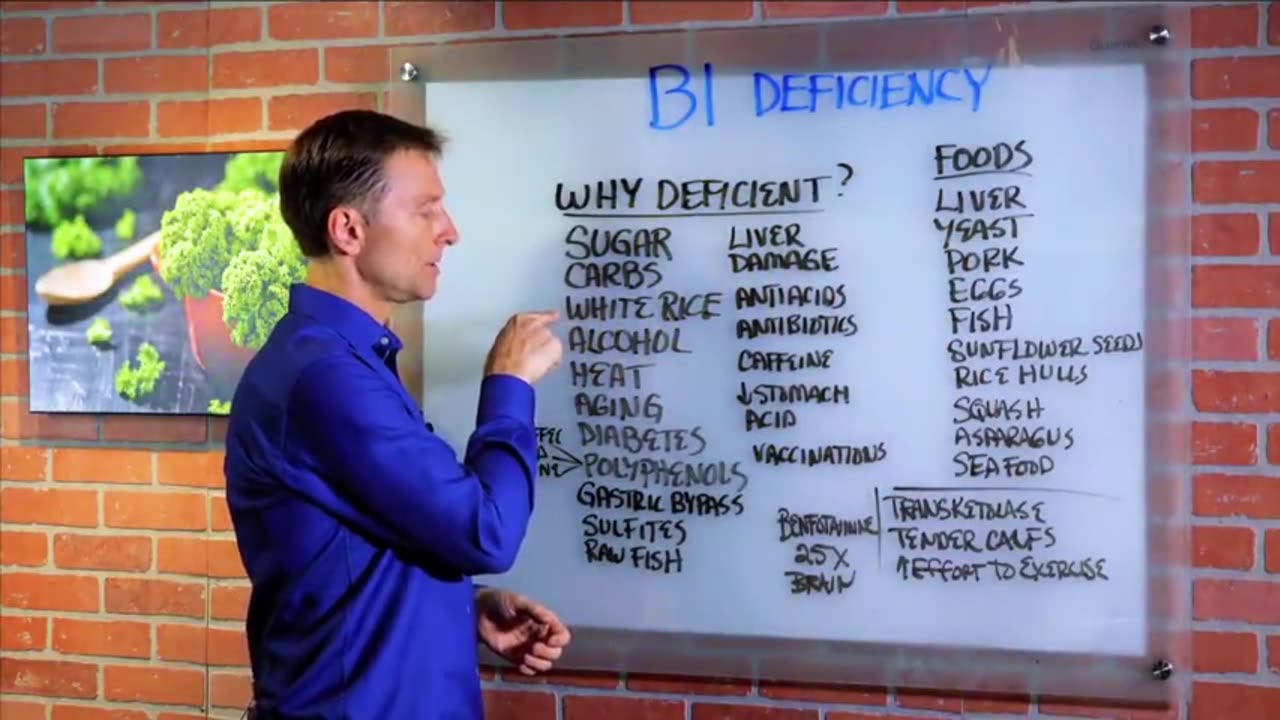 B1 DEFICIENCY
WHY DEFICIENT?
SUGAR
CARBS
WHITE RICE
ALCOHOL
HEAT
AGING
DIABETES
POLYPHENOLS
GASTRIC BYPASS
SULFITES
RAW FISH
LIVER
DAMAGE
ANTIACIDS
ANTIBIOTICS
CAFFEINE
↓STOMACH
ACID
VACCINATIONS
FOODS
LIVER
YEAST
PORK
EGGS
FISH
SUNFLOWER SEEDS
RICE HULLS
SQUASH
ASPARAGUS
SEAFOOD
BENFOTAIMINE
25X
BRAIN
TRANSKETOLASE
TENDER CALFS
↑EFFORT TO EXERCISE